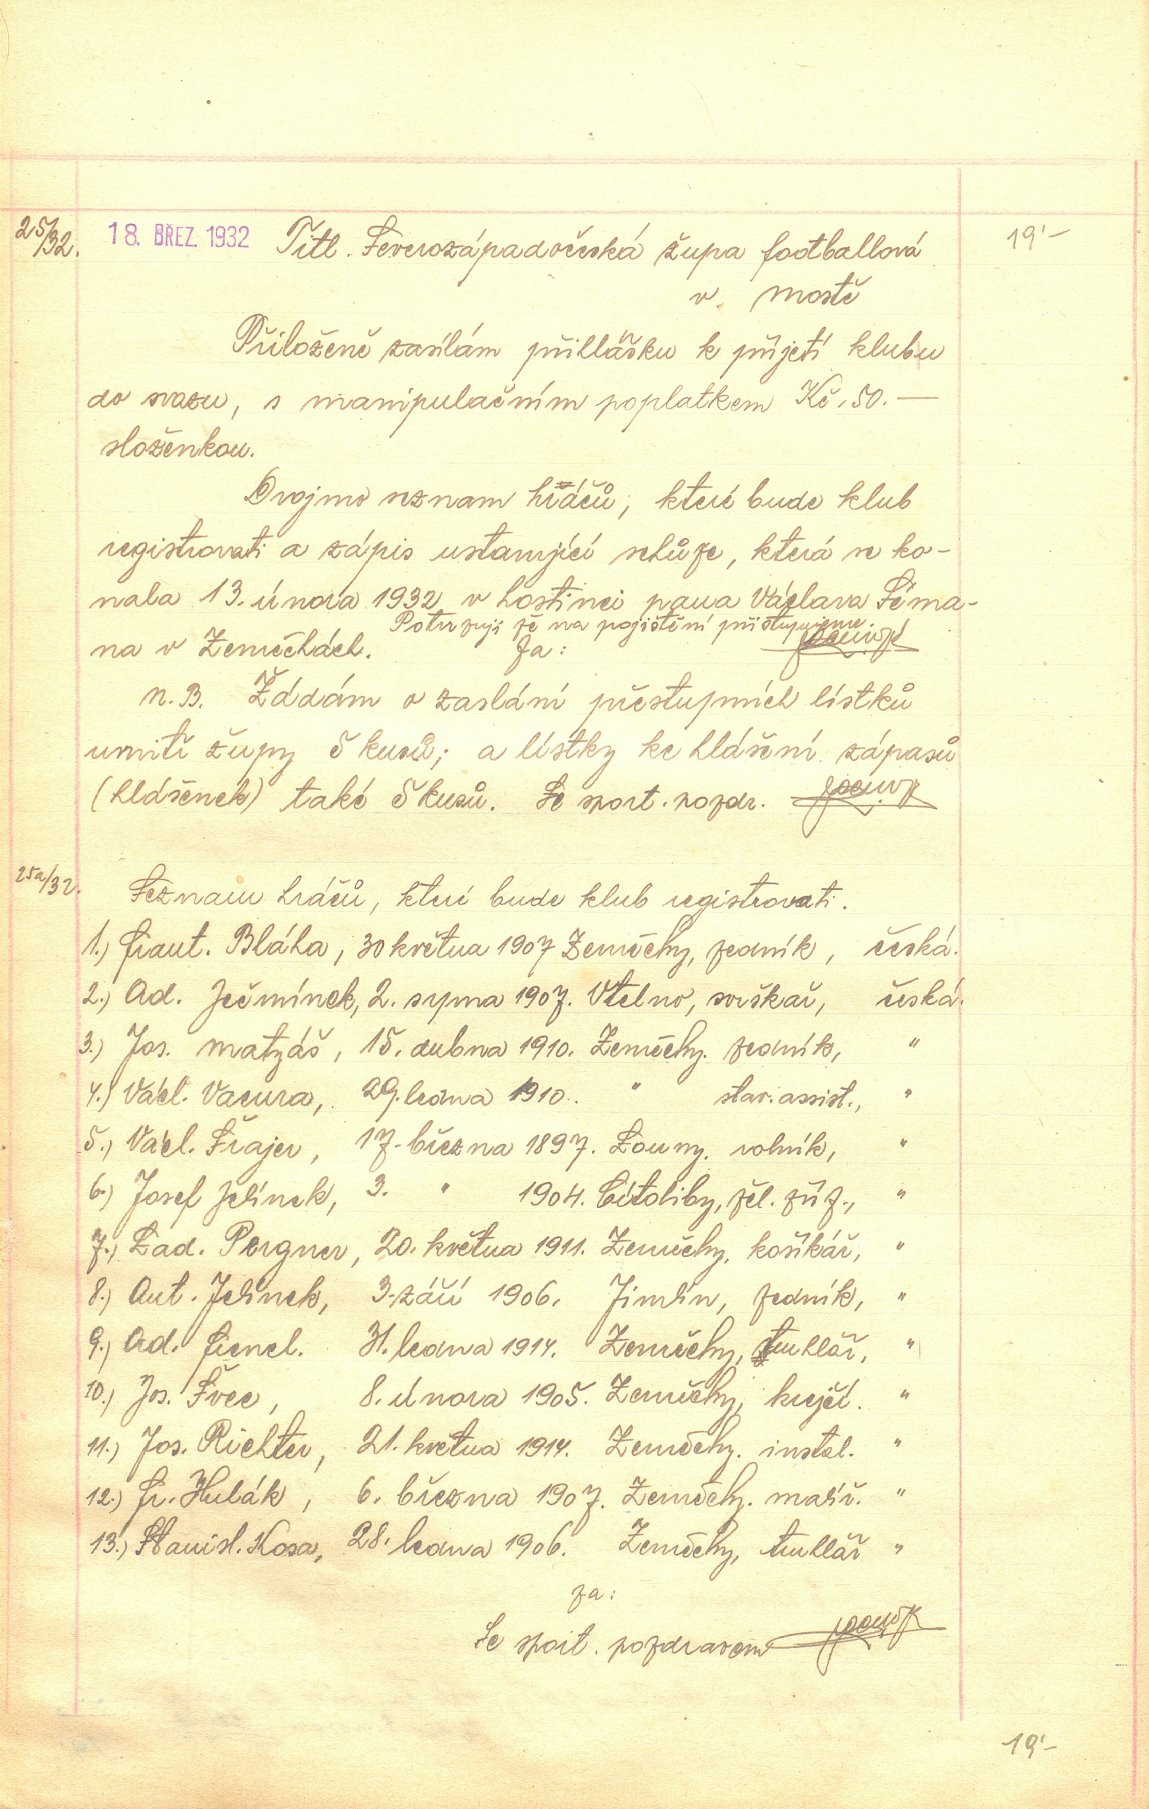 25/32. 18. BŘEZ. 1932 Titl. Severozápadočeská župa footballová 19'—
v. Mostě
Přiloženě zasílám přihlášku k přijetí klubu
do svazu, s manipulačním poplatkem Kč. 50.—
složenkou.
Dvojmo seznam hráčů, které bude klub
registrovati a zápis ustavující schůze, která se ko-
nala 13. února 1932 v hostinci pana Václava Séma-
Potvrzuji že na pojištění přistupujeme
na v Zeměchách. Za:
N.B. Žádám o zaslání přestupních lístků
uvnitř župy 5 kusů; a lístky ke hlášení zápasů
(hlášenek) také 5 kusů. Se sport. pozdr.
25a/32. Seznam hráčů, které bude klub registrovati.
1.) Frant. Bláha, 30 května 1907 Zeměchy, zedník, česká.
2.) Ad. Ječmínek, 2. srpna 1907. Vtelno, svrškař, česká.
3.) Jos. Matzáš, 15. dubna 1910. Zeměchy. zedník, "
4.) Václ. Vacura, 29. ledna 1910. " stav. assist., "
5.) Václ. Šrajer, 17. března 1897. Louny. rolník, "
6.) Josef Jelínek, 3. " 1904. Cítoliby, žel. zříz., "
7.) Lad. Pergner, 20. května 1911. Zeměchy, košíkář, "
8.) Ant. Jelínek, 3. září 1906. Jimlín, zedník, "
9.) Ad. Frencl. 31. ledna 1914. Zeměchy, truhlář, "
10.) Jos. Švec, 8. února 1905. Zeměchy, krejčí. "
11.) Jos. Richter, 21. května 1914. Zeměchy. instal. "
12.) Fr. Hulák, 6. března 1907. Zeměchy. malíř. "
13.) Stanisl. Kosa, 28. ledna 1906. Zeměchy, truhlář "
za:
Se sport. pozdravem
19'—